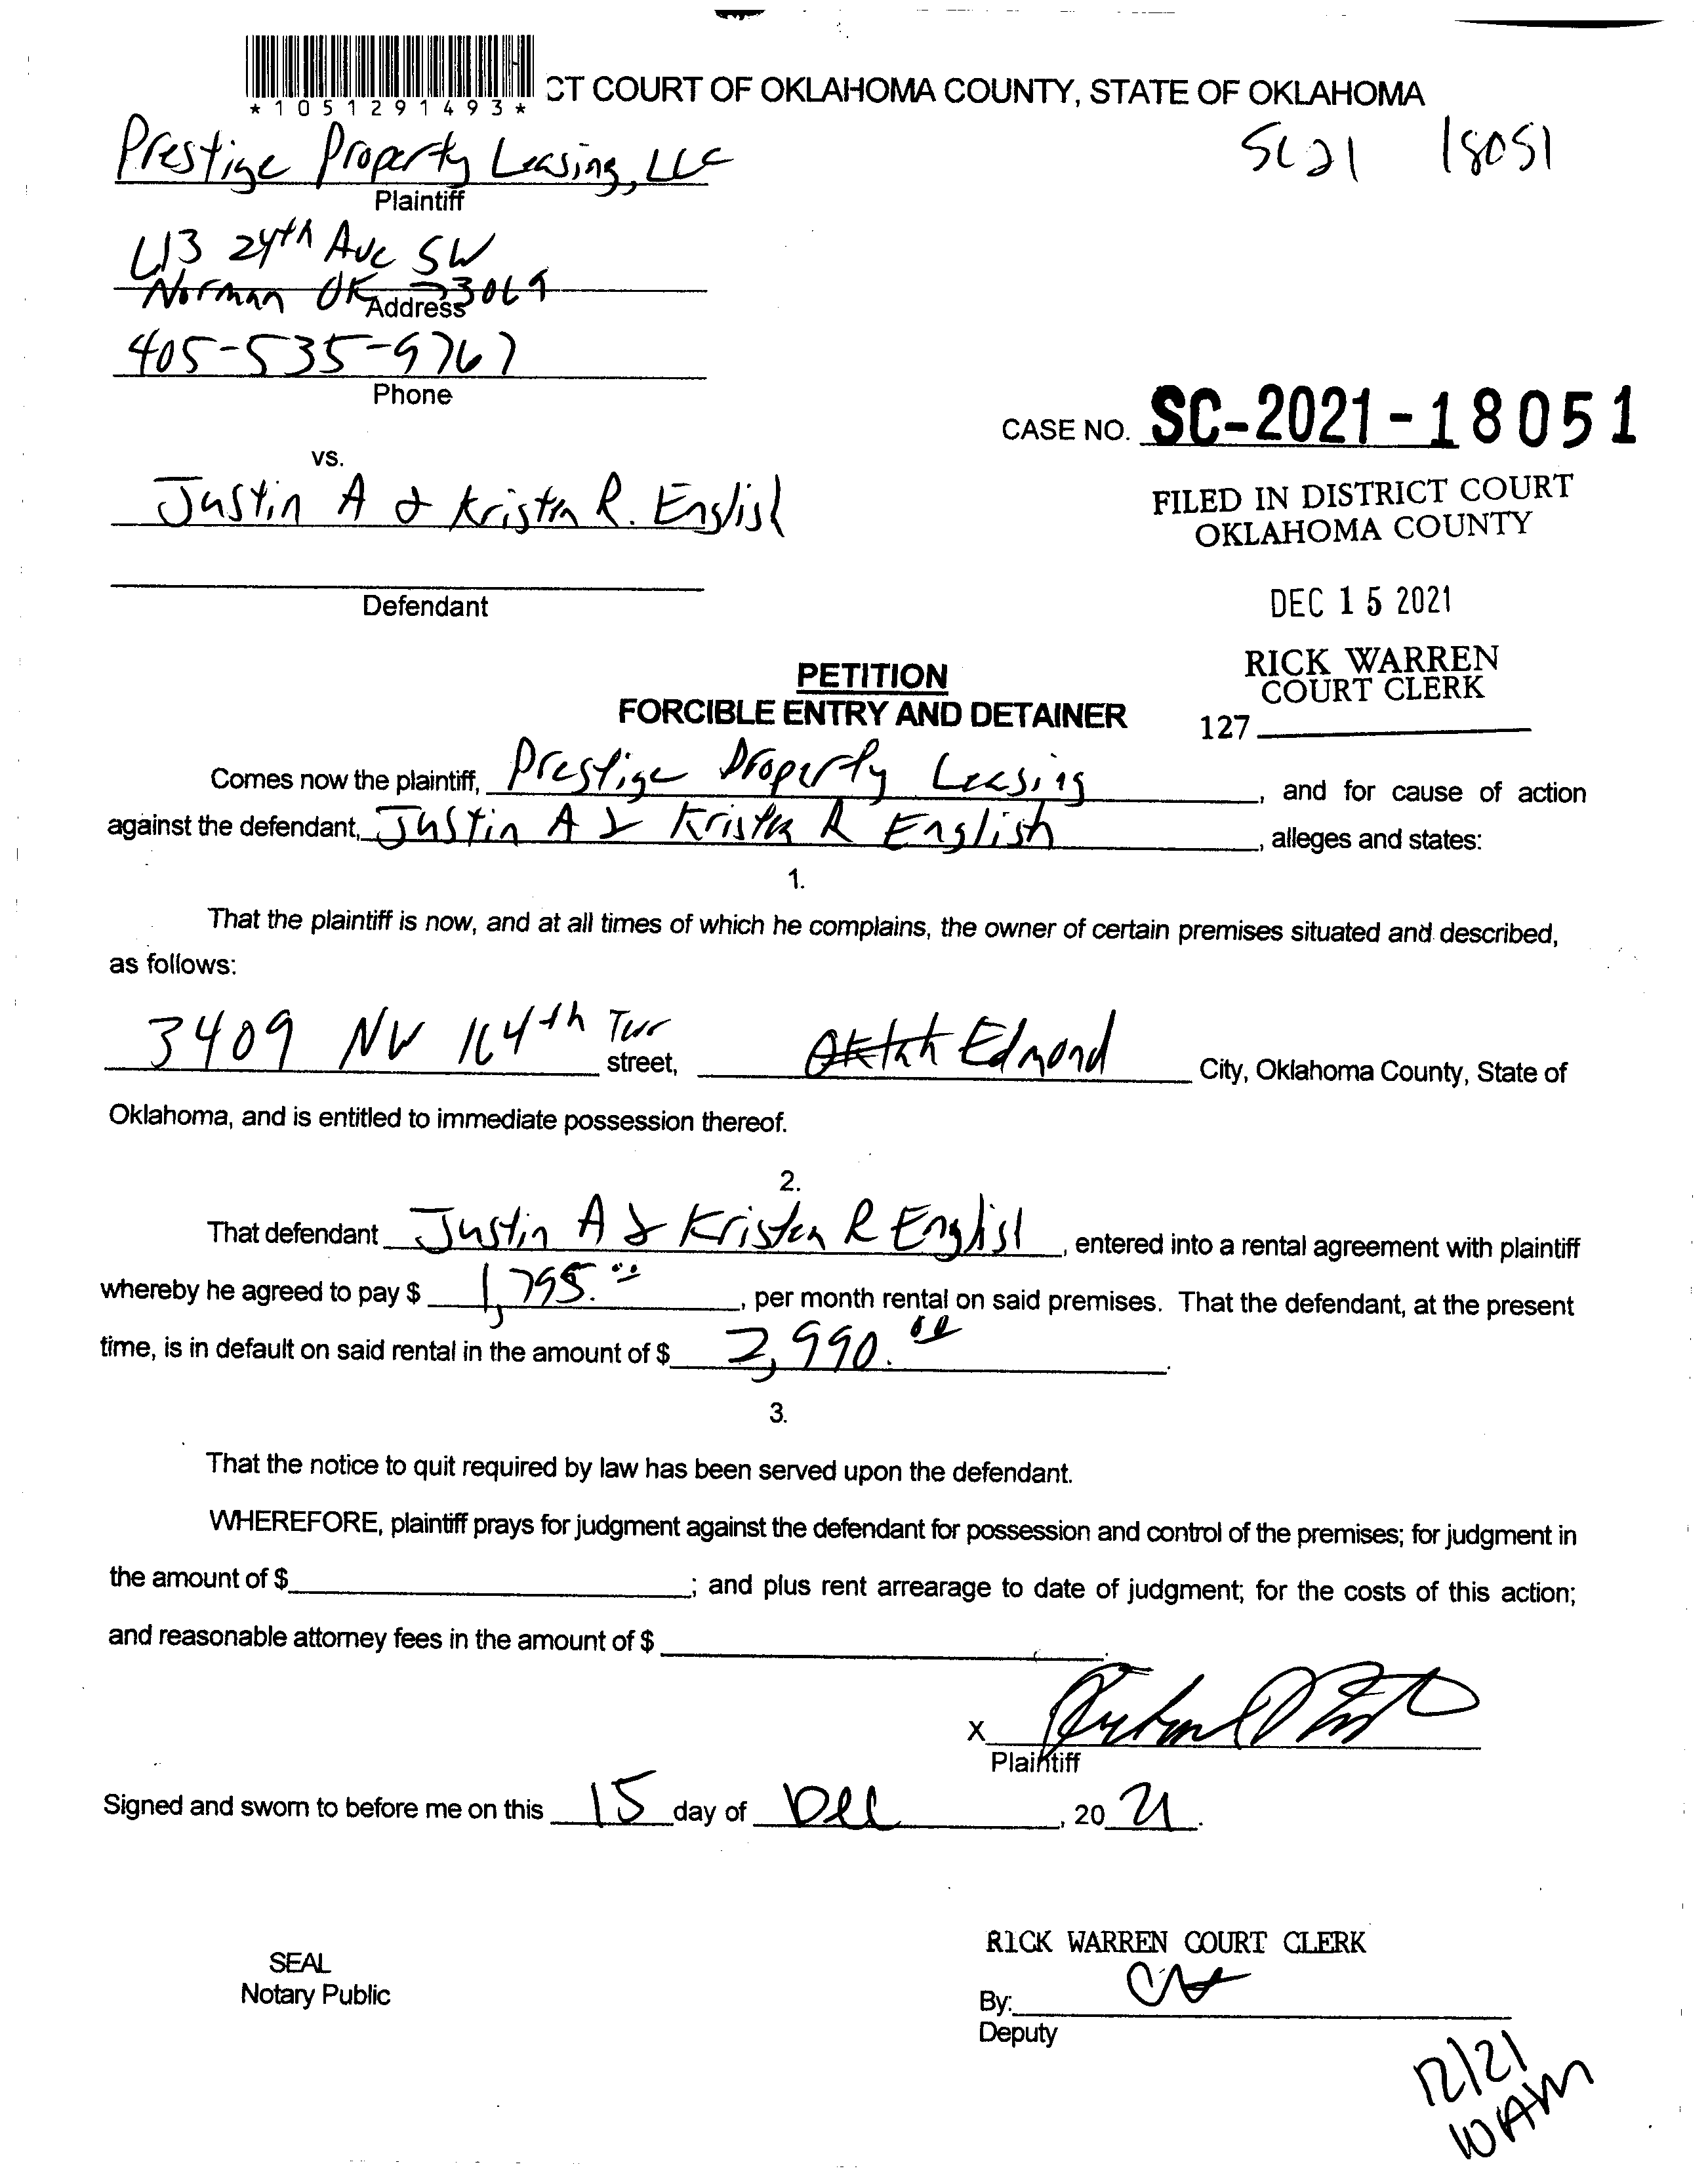 *1051291493*
CT COURT OF OKLAHOMA COUNTY, STATE OF OKLAHOMA
SC21 18051
Prestige Property Leasing, LLC
Plaintiff
24th Ave SW
Norman OK 73069
Address
405-535-9767
Phone
CASE NO. SC-2021-18051
vs.
Justin A & Kristen R. English
FILED IN DISTRICT COURT
OKLAHOMA COUNTY
Defendant
DEC 15 2021
RICK WARREN
COURT CLERK
127
PETITION
FORCIBLE ENTRY AND DETAINER
Comes now the plaintiff, Prestige Property Leasing, and for cause of action
against the defendant, Justin A & Kristen R English, alleges and states:
1.
That the plaintiff is now, and at all times of which he complains, the owner of certain premises situated and described,
as follows:
3409 NW 164th Terr street, Edmond City, Oklahoma County, State of
Oklahoma, and is entitled to immediate possession thereof.
2.
That defendant Justin A & Kristen R English, entered into a rental agreement with plaintiff
whereby he agreed to pay $ 1,795.00, per month rental on said premises. That the defendant, at the present
time, is in default on said rental in the amount of $ 2,990.00.
3.
That the notice to quit required by law has been served upon the defendant.
WHEREFORE, plaintiff prays for judgment against the defendant for possession and control of the premises; for judgment in
the amount of $ ; and plus rent arrearage to date of judgment; for the costs of this action;
and reasonable attorney fees in the amount of $ .
X
Plaintiff
Signed and sworn to before me on this 15 day of Dec, 20 21.
RICK WARREN COURT CLERK
SEAL
Notary Public
By:
Deputy
12/21
10AM